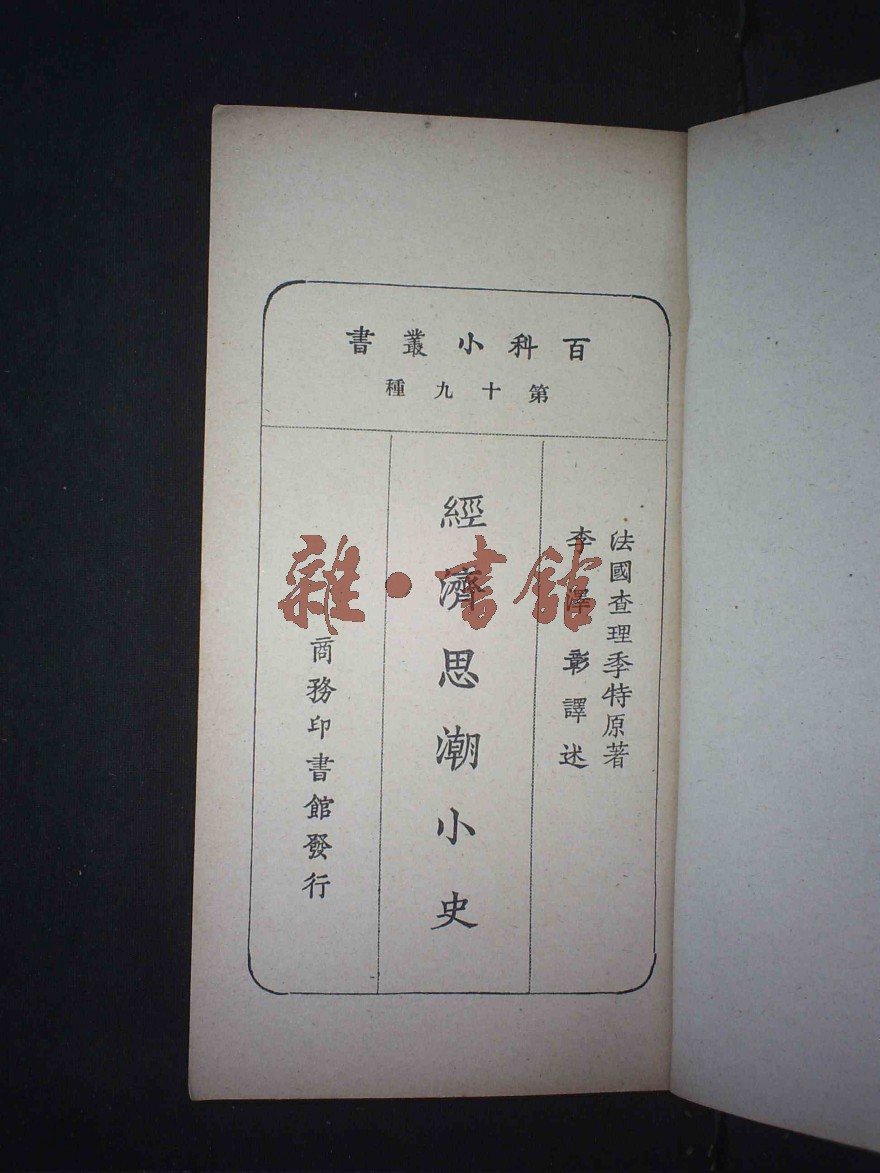 百科小叢書
第十九種
法國查理季特原著
李澤彰譯述
經濟思潮小史
商務印書館發行
雜·書館